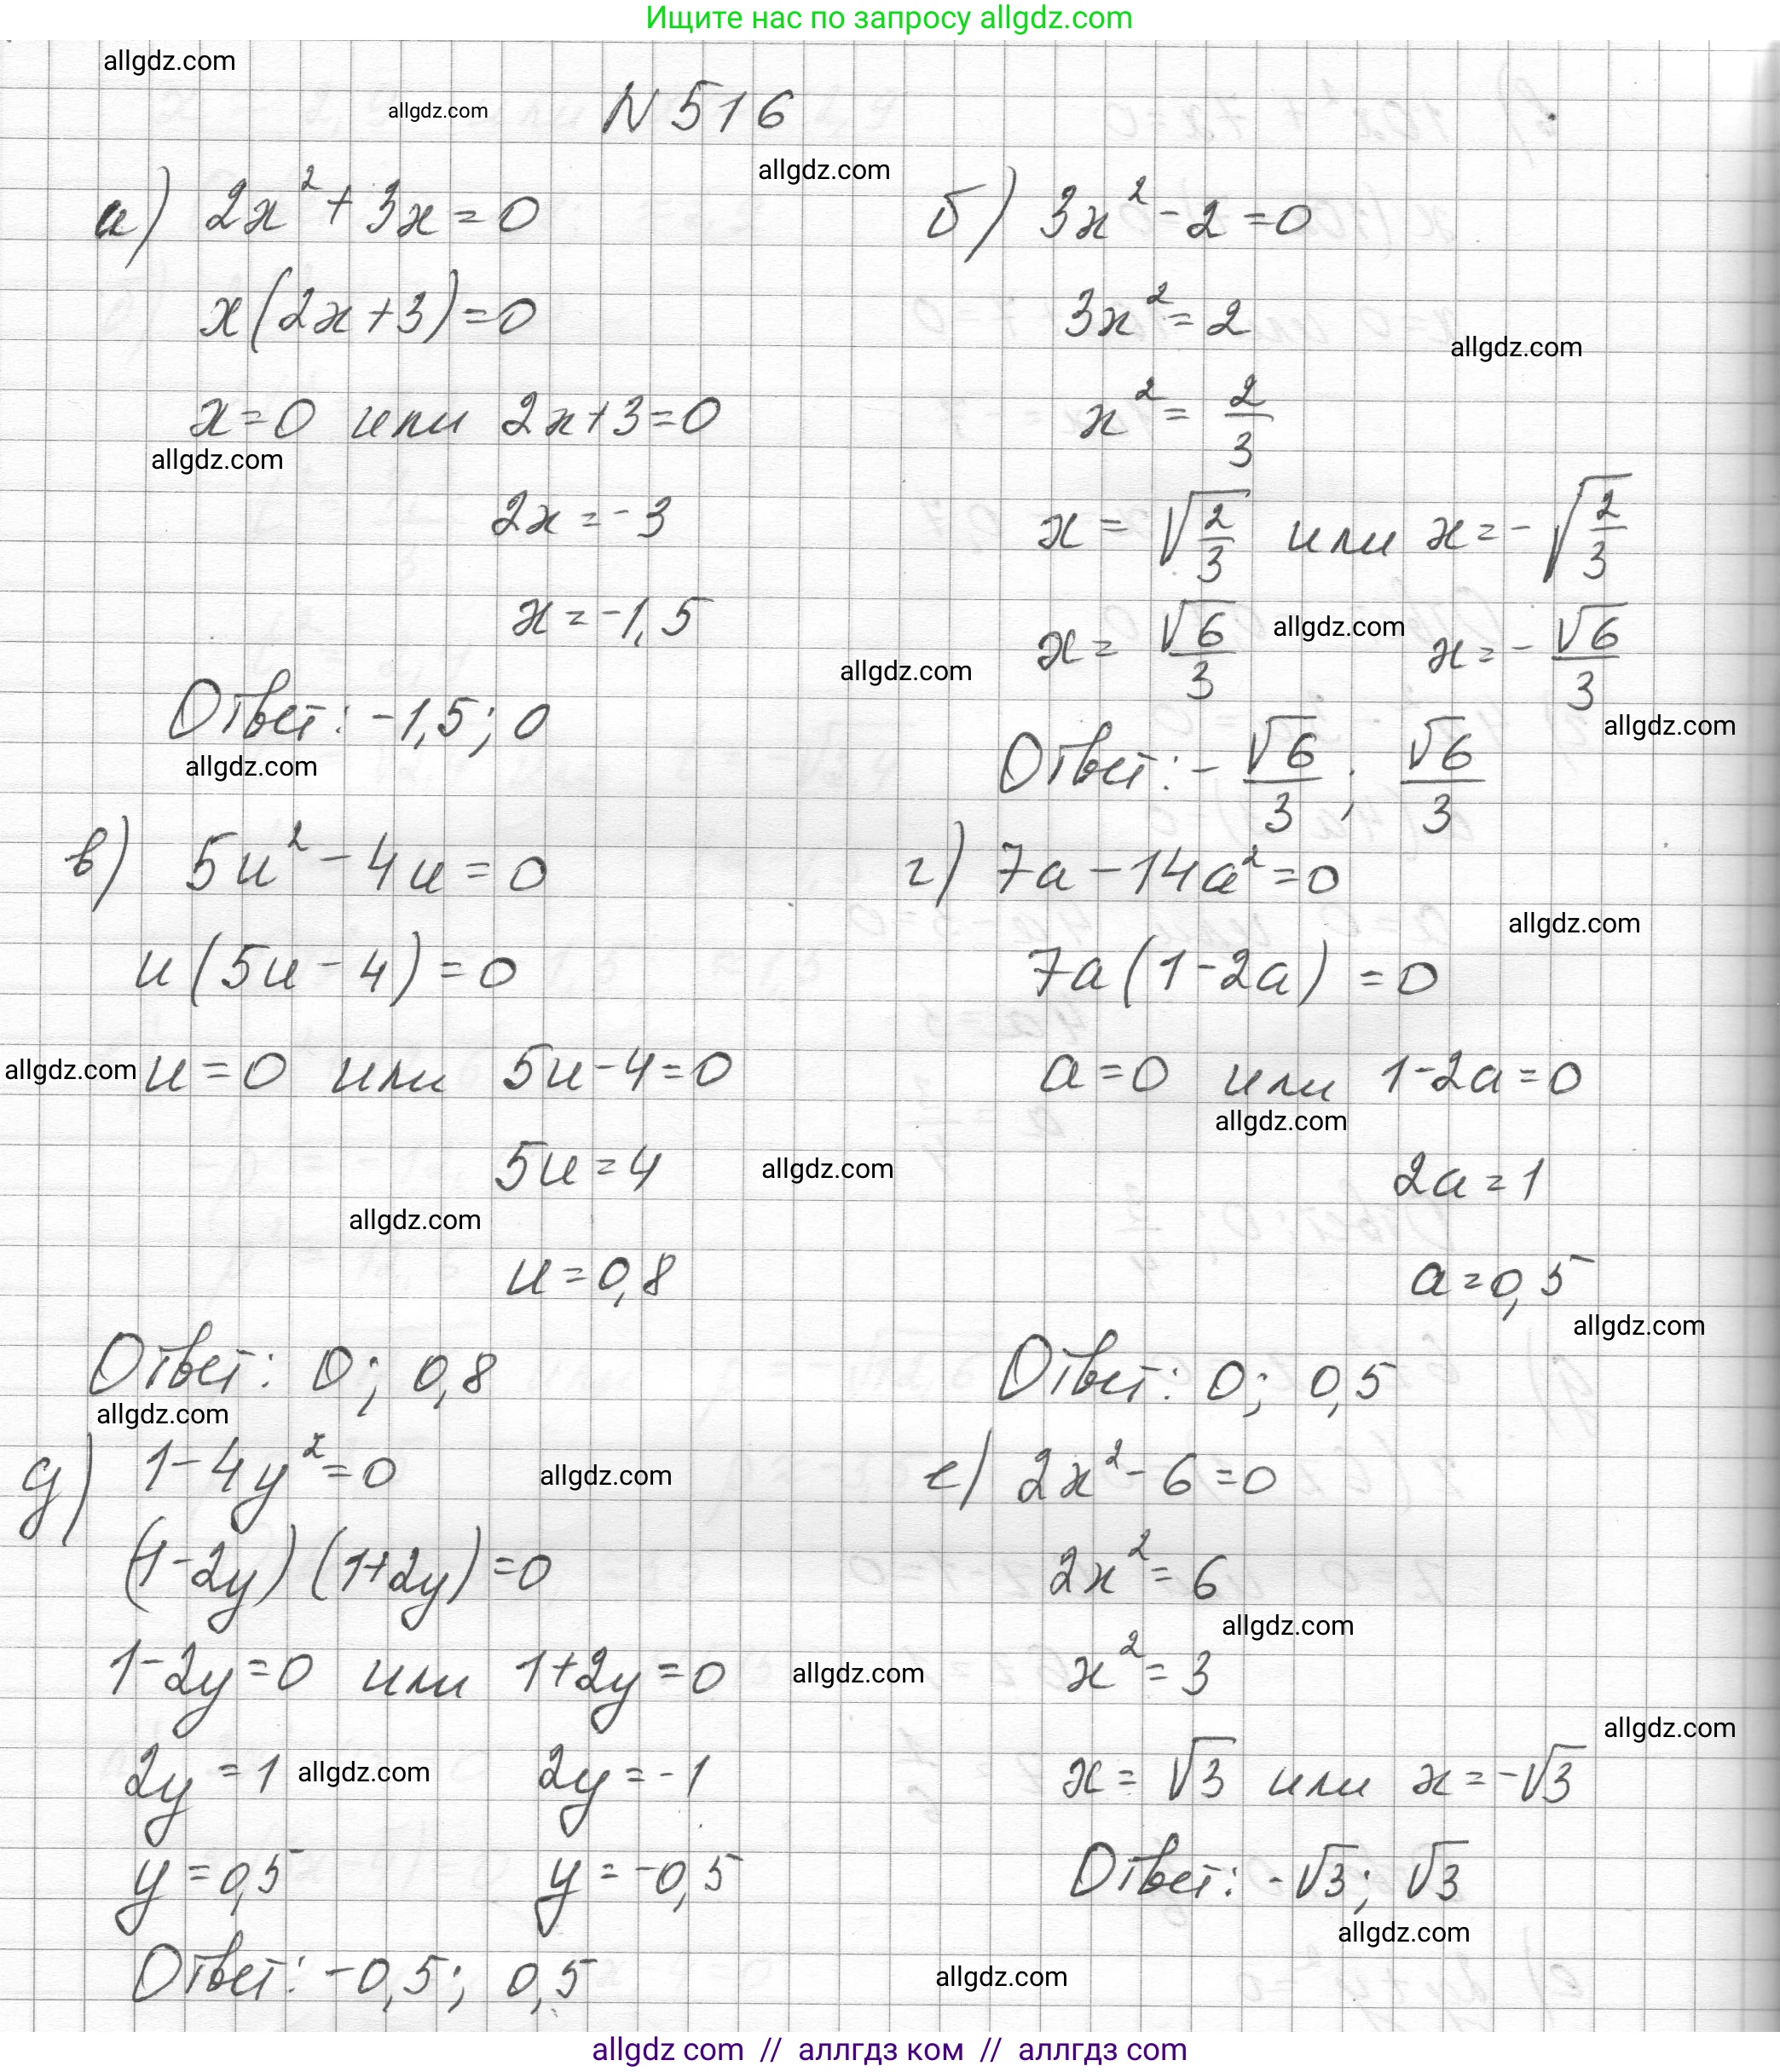 Ищите нас по запросу allgdz.com
allgdz.com
allgdz.com
N 516
allgdz.com
а) 2x² + 3x = 0
x(2x+3)=0
x=0 или 2x+3=0
allgdz.com
2x = -3
x = -1,5
Ответ: -1,5; 0
allgdz.com
б) 3x² - 2 = 0
3x² = 2
allgdz.com
x² = 2/3
x = √(2/3) или x = -√(2/3)
allgdz.com
x = √6/3 x = -√6/3
allgdz.com
allgdz.com
Ответ: -√6/3; √6/3
в) 5u² - 4u = 0
u(5u - 4) = 0
allgdz.com
u = 0 или 5u - 4 = 0
5u = 4
allgdz.com
allgdz.com
u = 0,8
Ответ: 0; 0,8
allgdz.com
г) 7a - 14a² = 0
allgdz.com
7a(1-2a) = 0
a = 0 или 1-2a = 0
allgdz.com
2a = 1
a = 0,5
allgdz.com
Ответ: 0; 0,5
д) 1 - 4y² = 0
allgdz.com
(1-2y)(1+2y) = 0
1-2y = 0 или 1+2y = 0
allgdz.com
2y = 1 allgdz.com 2y = -1
y = 0,5 y = -0,5
Ответ: -0,5; 0,5
е) 2x² - 6 = 0
2x² = 6
allgdz.com
x² = 3
allgdz.com
x = √3 или x = -√3
Ответ: -√3; √3
allgdz.com
allgdz.com
allgdz com // аллгдз ком // аллгдз com